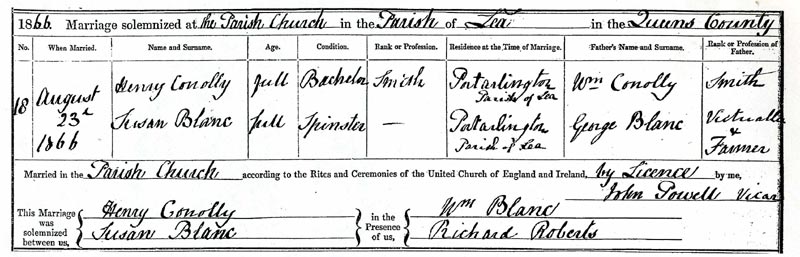 1866. Marriage solemnized at the Parish Church in the Parish of Lea in the Queens County
No. When Married. Name and Surname. Age. Condition. Rank or Profession. Residence at the Time of Marriage. Father's Name and Surname. Rank or Profession of Father.
18 August 23d 1866 Henry Conolly full Bachelor Smith Portarlington Parish of Lea Wm Conolly Smith
Susan Blanc full Spinster — Portarlington Parish of Lea George Blanc Victualler & Farmer
Married in the Parish Church according to the Rites and Ceremonies of the United Church of England and Ireland, by Licence by me,
John Powell Vicar
This Marriage was solemnized between us, Henry Conolly Susan Blanc in the Presence of us, Wm Blanc Richard Roberts